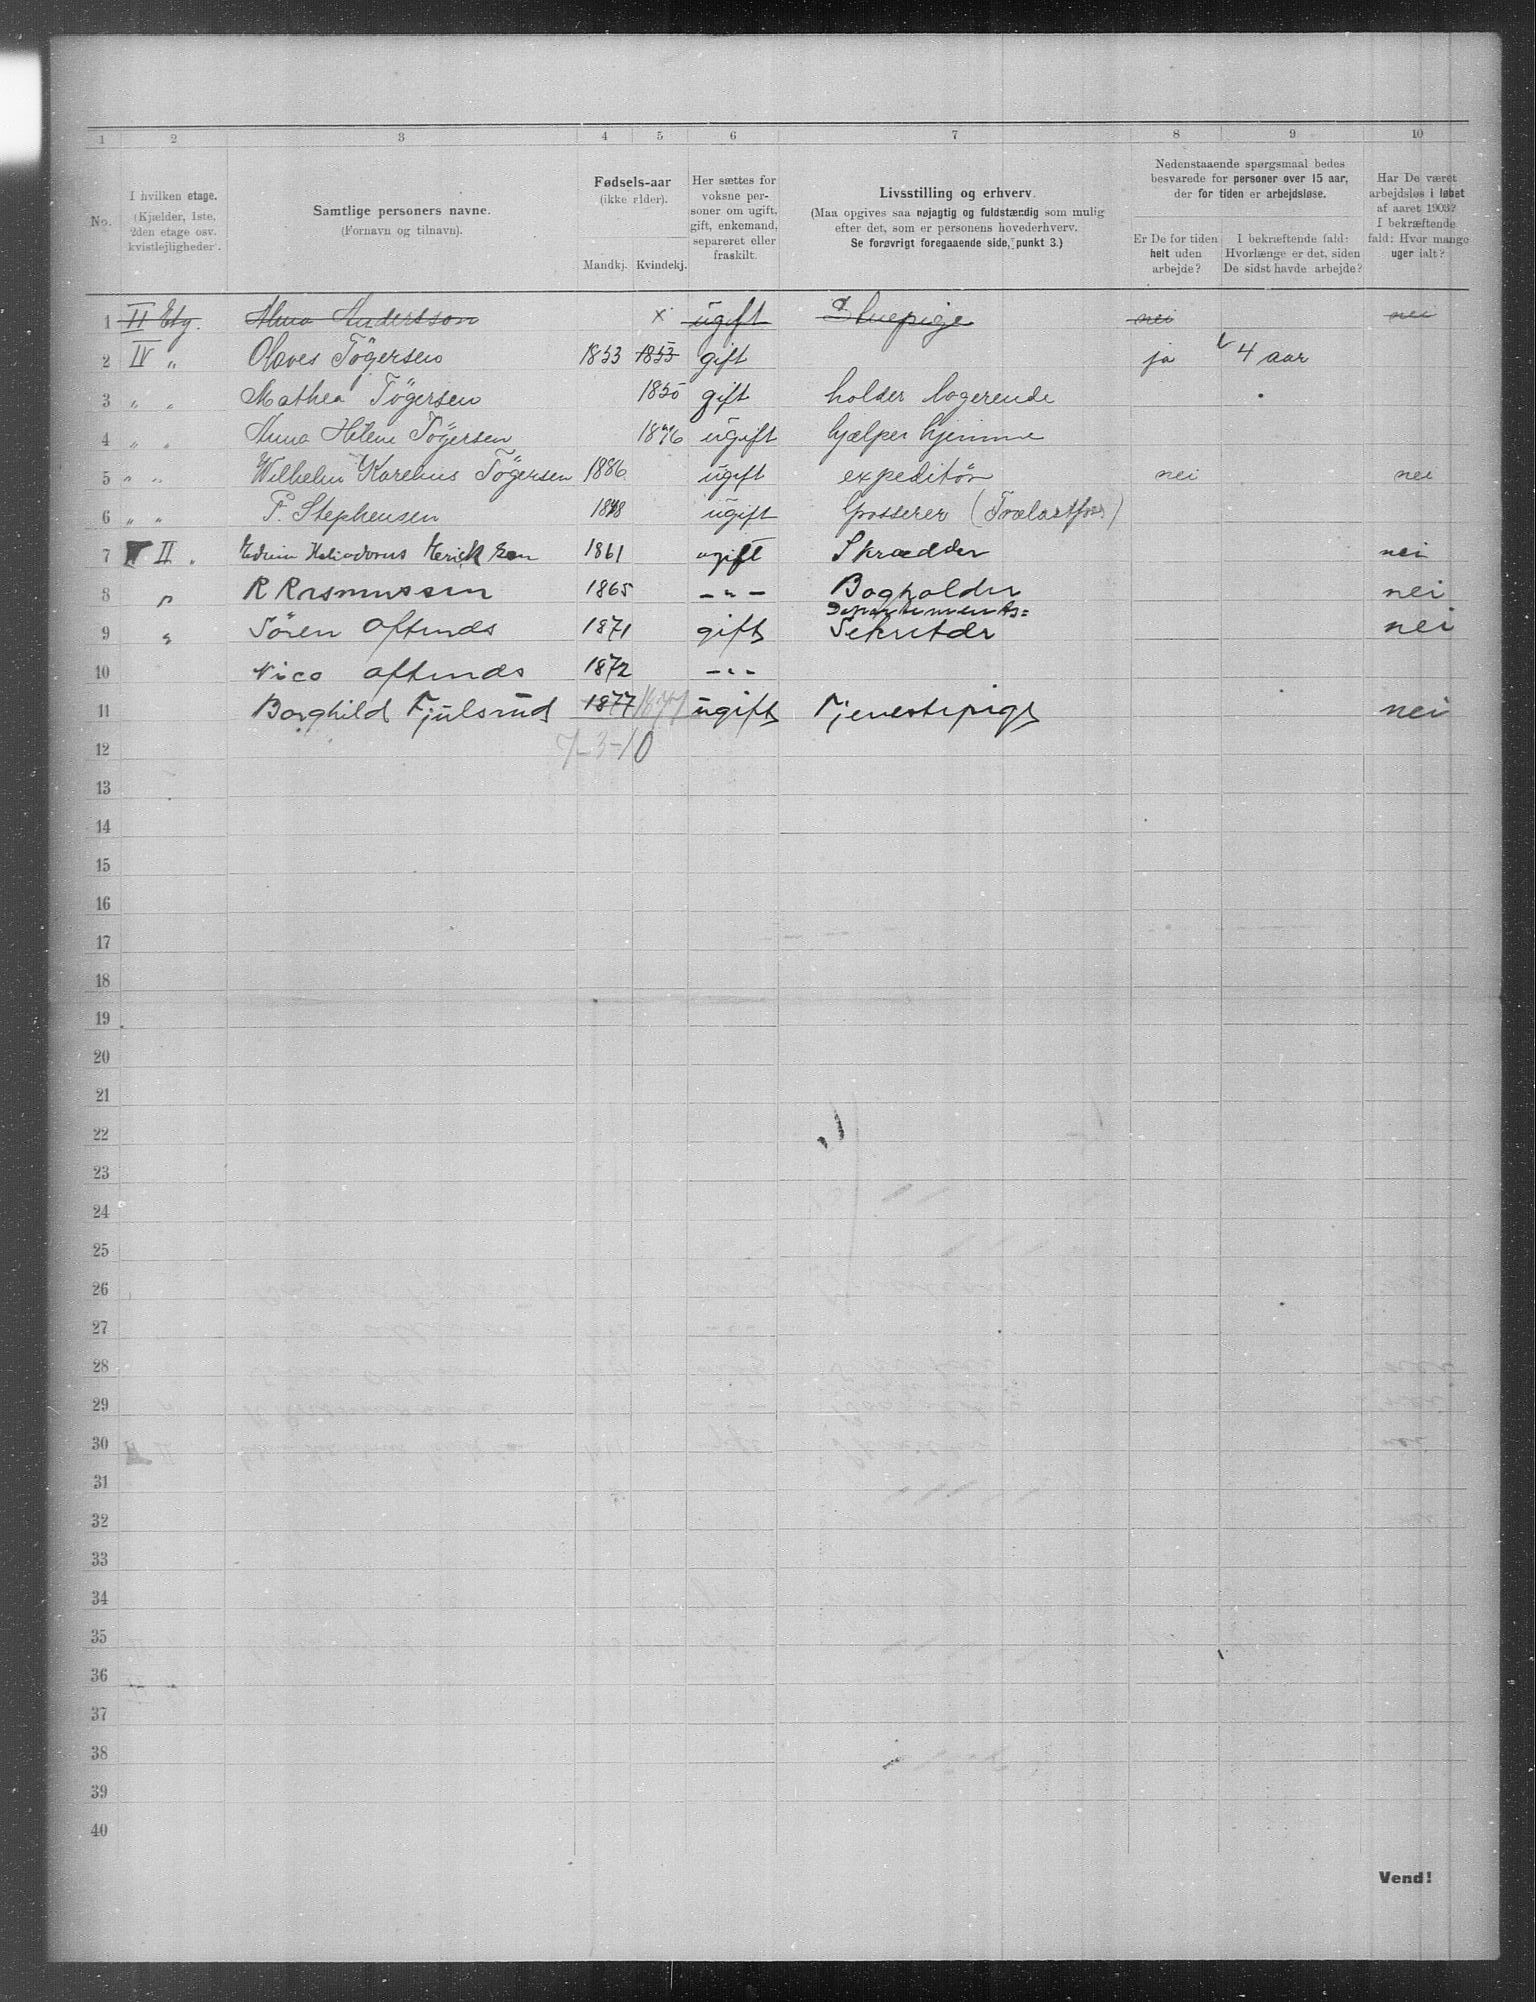 1 2 3 4 5 6 7 8 9 10
No.
I hvilken etage.
(Kjælder, 1ste,
2den etage osv.
kvistlejligheder).
Samtlige personers navne.
(Fornavn og tilnavn).
Fødsels-aar
(ikke alder).
Mandkj. Kvindekj.
Her sættes for
voksne per-
soner om ugift,
gift, enkemand,
separeret eller
fraskilt.
Livsstilling og erhverv.
(Maa opgives saa nøjagtig og fuldstændig som mulig
efter det, som er personens hovederhverv.
Se forøvrigt foregaaende side, punkt 3.)
Nedenstaaende spørgsmaal bedes
besvarede for personer over 15 aar,
der for tiden er arbejdsløse.
Er De for tiden
helt uden
arbejde?
I bekræftende fald:
Hvorlænge er det, siden
De sidst havde arbejde?
Har De været
arbejdsløs i løbet
af aaret 1903?
I bekræftende
fald: Hvor mange
uger ialt?
1 II Etg. Alma Andersson x ugift Stuepige nei nei
2 IV „ Olaves Tögersen 1853 1853 gift ja 4 aar
3 „ „ Mathea Tögersen 1850 gift holder logerende
4 „ „ Anna Helene Tögersen 1876 ugift hjælper hjemme
5 „ „ Wilhelm Karelius Tögersen 1886 ugift expeditör nei nei
6 „ „ P. Stephensen ugift Grosserer (Trælastforr.)
7 II „ Edwin Heliodorus Erickson 1861 ugift Skrædder nei
8 „ R Rasmussen 1865 – „ – Bogholder nei
Departements=
9 „ Sören Oftinds 1871 gift Sekretær nei
10 Nico Oftinds 1872 – „ –
11 Borghild Fjulsrud 1877 1877 ugift Tjenestepige nei
7-3-10
12
13
14
15
16
17
18
19
20
21
22
23
24
25
26
27
28
29
30
31
32
33
34
35
36
37
38
39
40
Vend!